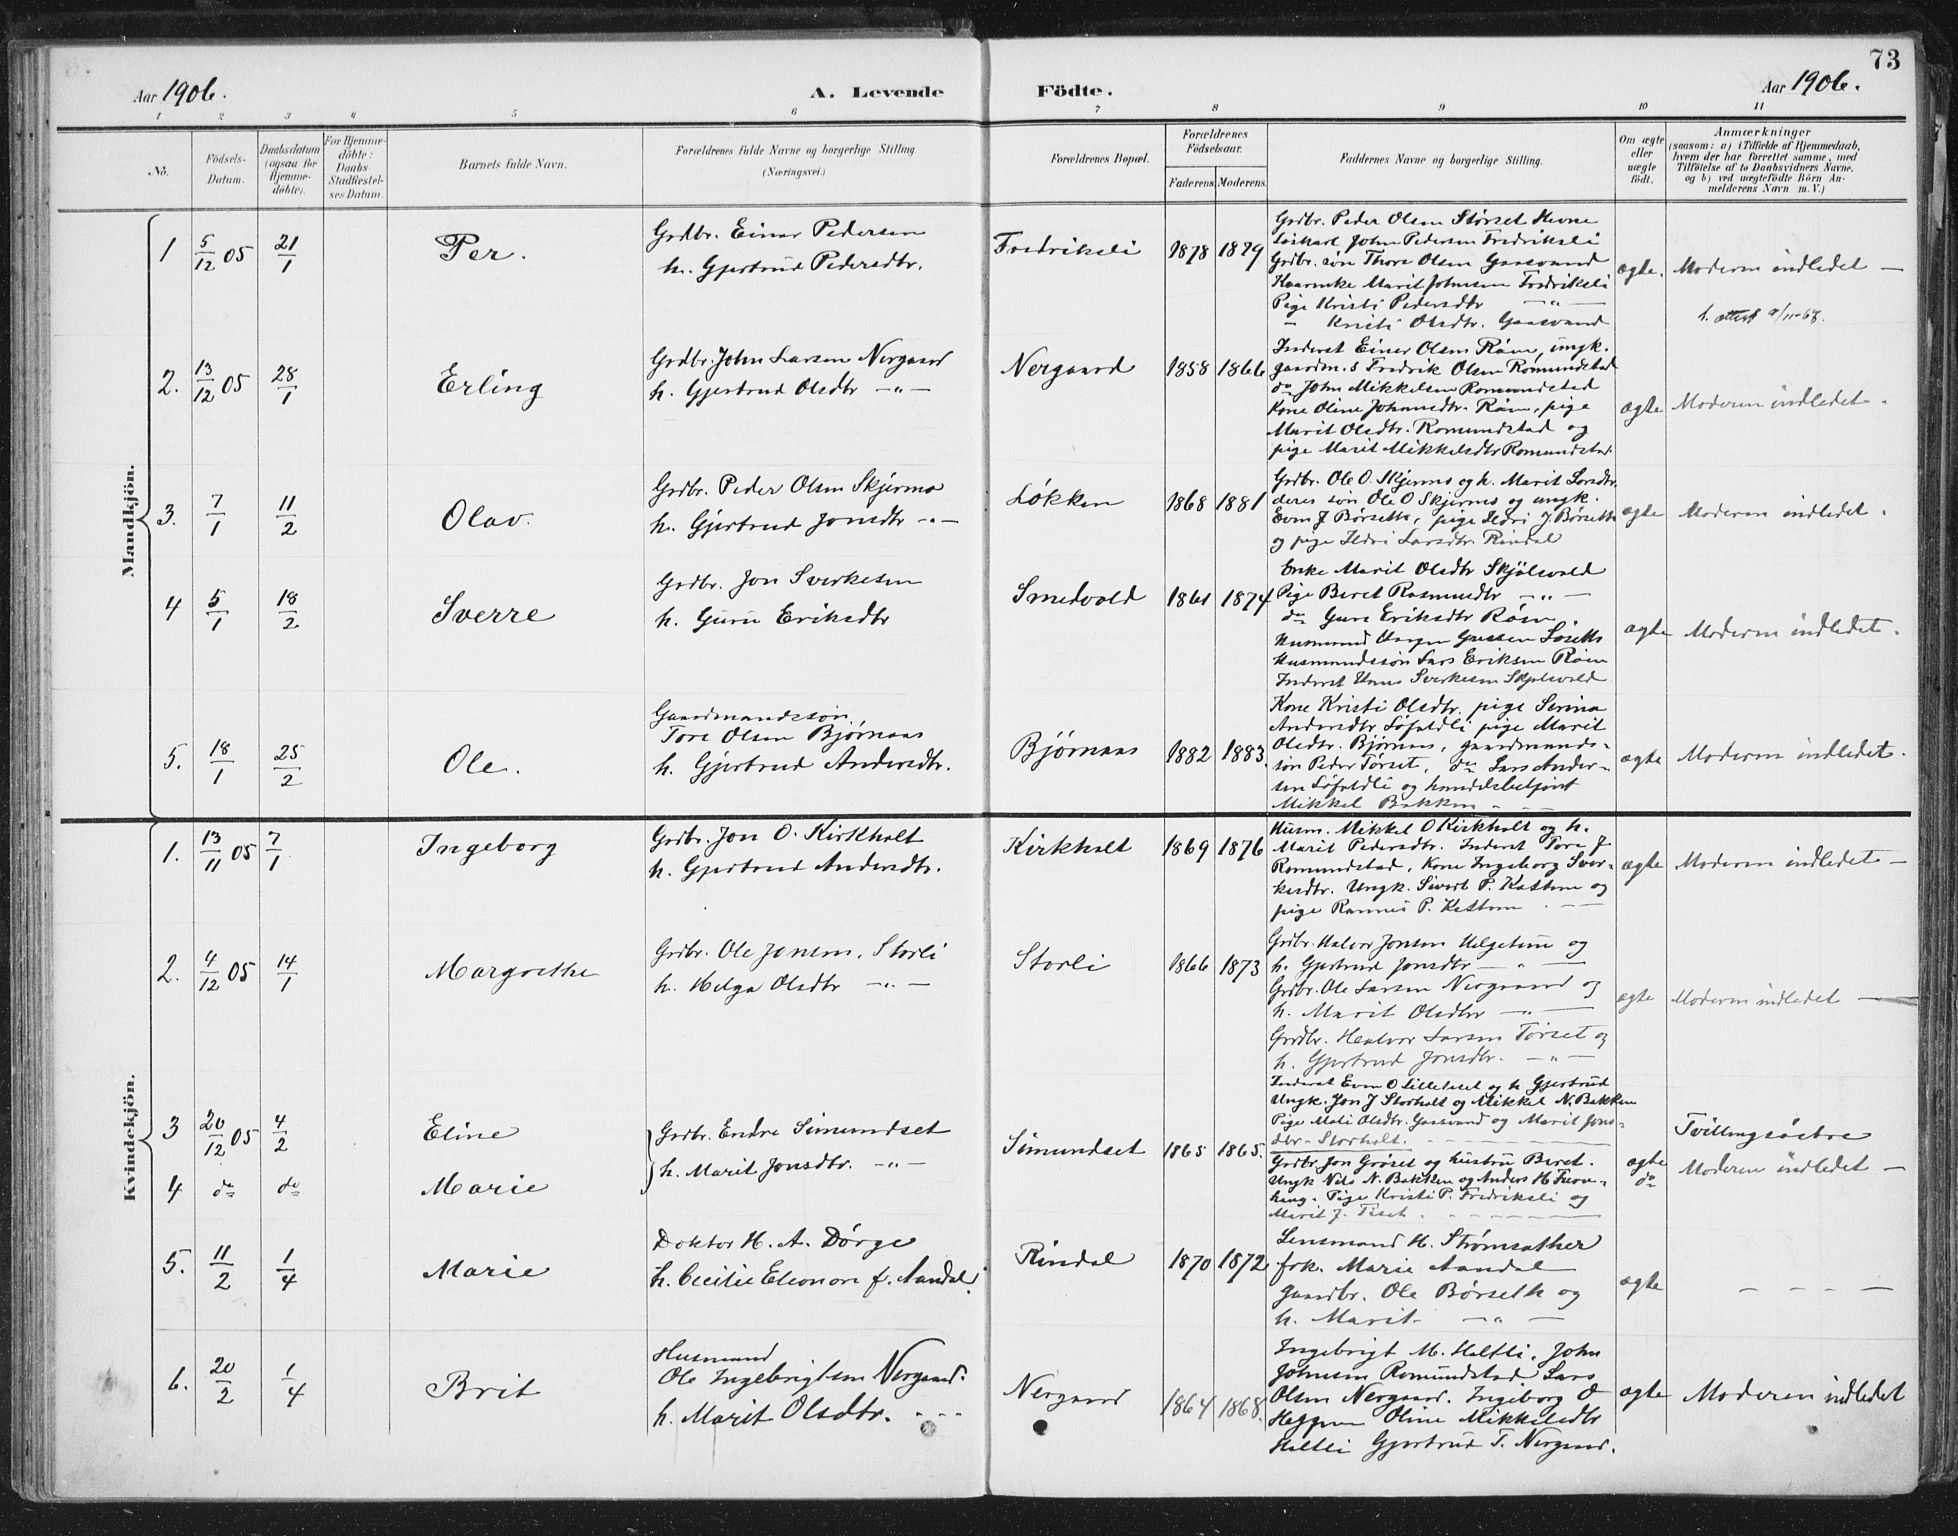 73
Aar 1906. A. Levende Födte. Aar 1906.
1 2 3 4 5 6 7 8 9 10 11
No.
Födsels-
Datum.
Daabsdatum
(ogsaa for
Hjemme-
döbte).
For Hjemme-
döbte:
Daabs-
Stadfæstel-
ses Datum.
Barnets fulde Navn.
Forældrenes fulde Navne og borgerlige Stilling
(Næringsvei.)
Forældrenes Bopæl.
Forældrenes
Födselsaar.
Faderens. Moderens.
Faddernes Navne og borgerlige Stilling.
Om ægte
eller
uægte
födt.
Anmærkninger
(saasom: a) i Tilfælde af Hjemmedaab,
hvem der har forrettet samme, med
Tilföielse af to Daabsvidners Navne,
og b) ved uægtefödte Börn An-
melderens Navn m. V.)
Mandkjön.
1 5/12 05 21/1 Per.
Grdbr. Einar Pedersen
h. Gjertrud Pedersdtr.
Fredriksli 1878 1879
Grdbr. Peder Olsen Størset Hevne
John Pedersen Fredriksli
Grdbr. søn Thore Olsen Gaasvand
Marit Johnsen Fredriksli
Pige Kristi Pedersdtr — " —
— Kristi Olsdtr. Gaasvand
ægte. Moderen indledet —
2. 13/12 05 28/1 Erling
Grdbr. John Larsen Nergaard
h. Gjertrud Olsdtr — " —
Nergaard 1858 1866
Inderst Einar Olsen Røen, ungk.
gaardm. s Fredrik Olsen Romundstad
do John Mikkelsen Romundstad
Kone Oline Johansdtr. Røen, pige
Marit Olsdtr. Romundstad og
pige Marit Mikkelsdtr Romundstad.
ægte Moderen indledet.
3. 7/1 11/2 Olav.
Grdbr. Peder Olsen Skjermo
h. Gjertrud Jonsdtr — " —
Løkken 1868 1881
Grdbr. Ole O. Skjermo og h. Marit Larsdtr.
deres søn Ole O Skjermo og ungk.
Even J Børseth, pige Ildri J. Børseth
og pige Ildri Larsdtr Rindal
ægte Moderen indledet.
4 5/1 18/2 Sverre
Grdbr. Jon Sverkesen
h. Guru Eriksdtr
Smedvold 1861 1874
Enke Marit Olsdtr Skjølsvold
Pige Beret Rasmusdtr — " —
do Guru Eriksdtr Røen.
Husmandssøn Lars Eriksen Røen
Inderst Hans Sverkesen Skjølsvold
ægte Moderen indledet.
5. 18/1 25/2 Ole.
Gaardmandssøn,
Tore Olsen Bjørnaas
h. Gjertrud Andersdtr.
Bjørnaas 1882 1883.
Kone Kristi Olsdtr. pige Serina
Andersdtr Løfaldli pige Marit
Olsdtr. Bjørnaas, gaardmands-
søn Peder Tørset, do Lars Ander-
sen Løfaldli og handelsbetjent
Mikkel Bakken
ægte Moderen indledet.
Kvindekjön.
1. 13/11 05 7/1 Ingeborg
Grdbr. Jon O. Kirkholt
h. Gjertrud Andersdtr.
Kirkholt 1869 1876
Husm. Mikkel O Kirkholt og h.
Marit Pedersdtr. Inderst Tore J
Romundstad, Kone Ingeborg Sver-
kesdtr. Ungk. Sivert P. Kattem og
pige Rannei P. Kattem
ægte Moderen indledet —
2. 4/12 05 14/1 Margrethe
Grdbr. Ole Jonsen. Storli
h. Helga Olsdtr — " —
Storli 1866 1873
Grdbr. Halvor Jonsen Helgetun og
h. Gjertrud Jonsdtr — " —
Grdbr. Ole Larsen Nergaard og
h. Marit Olsdtr — " —
Grdbr. Halvor Larsen Tørset og
h. Gjertrud Jonsdtr. — " —
ægte Moderen indledet —
3 20/12 05 4/2 Eline
4 do do Marie
Grdbr. Endre Simundset
h. Marit Jonsdtr. — " —
Simundset 1865 1865.
Inderst Even O Lilleteet og h Gjertrud
Ungk. Jon J Storholt og Mikkel N. Bakken
Pige Mali Olsdtr. Gaasvand og Marit Jons-
dtr. Storholt.
Grdbr Jon Grøset og hustru Beret.
Ungk Nils N. Bakken og Anders H
Pige Kristi P. Fredriksli og
Marit J. Tiset
ægte
do
Tvillingsøstre
Moderen indledet —
5. 11/2 1/4 Marie
Doktor H. A. Dørge
h. Cecilie Eleonore f. Aandal.
Rindal 1870 1872
Lensmand H. Strømsather
frk. Marie Aandal
Gaardbr. Ole Børseth og
h. Marit — " —
ægte — — — —
6. 20/2 1/4 Brit
Husmand
Ole Ingebrigtsen Nergaard.
h. Marit Olsdtr.
Nergaard 1864 1868.
Ingebrigt M. Heltli, John
Johnsen Romundstad Lars
Olsen Nergaard. Ingeborg O
Heggem Oline Mikkelsdtr
Heltli Gjertrud T. Nergaard.
ægte Moderen indledet